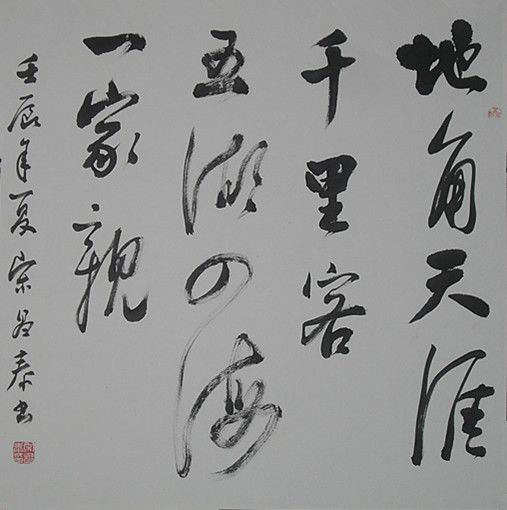 地角天涯
千里客
五湖四海
一家親
壬辰年夏宗昌泰书